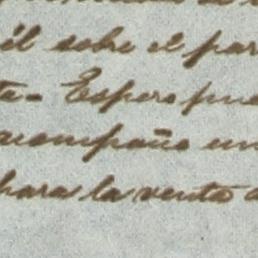 él sobre el par
ta - Espero pue
acompaño un
para la venta